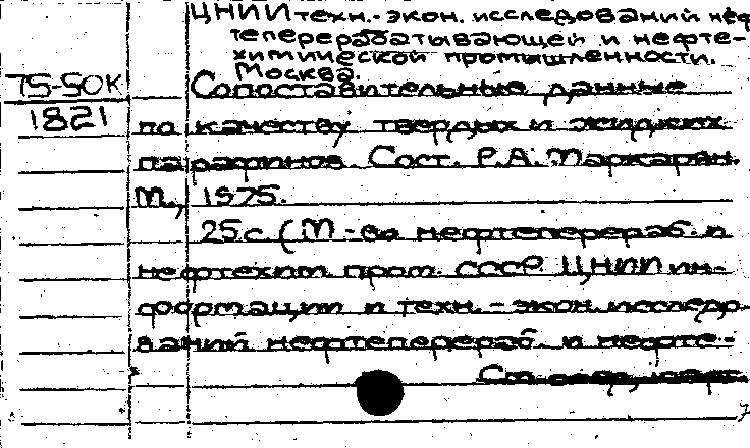 ЦНИИ техн.-экон. исследований неф
теперерабатывающей и нефте-
химической промышленности.
Москва.
75-50К
Сопоставительные данные
1821
по качеству твердых и жидких
парафинов. Сост. Р.А. Маркарян.
М., 1975.
25с. (М-во нефтеперераб. и
нефтехим. пром. СССР ЦНИИ ин-
формации и техн.-экон. исследо-
ваний нефтеперераб. и нефте-
См